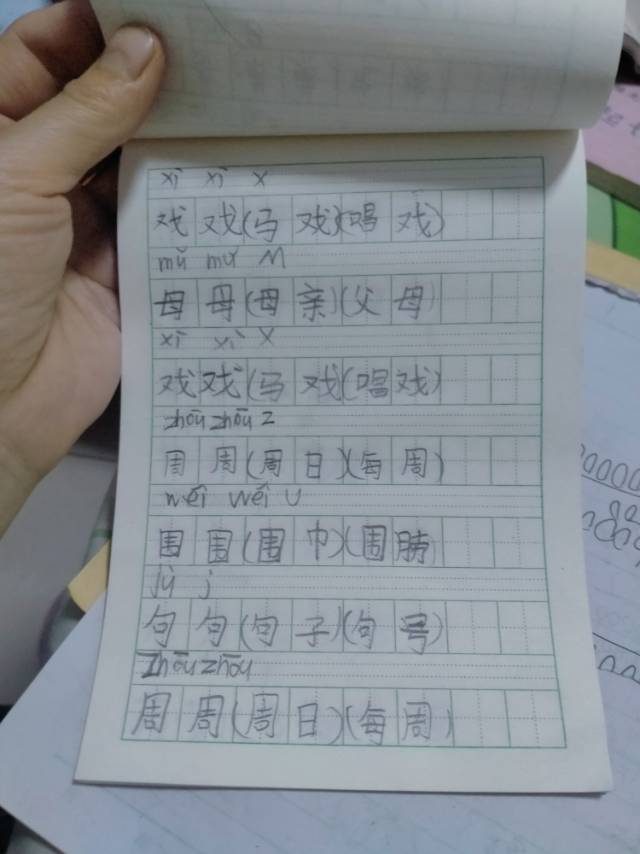 xì xì x
戏戏(马戏)(唱戏)
mǔ mǔ M
母母(母亲)(父母)
xì xì X
戏戏(马戏)(唱戏)
zhōu zhōu z
周周(周日)(每周)
wéi wéi U
围围(围巾)(围脖)
jù j
句句(句子)(句号)
zhōu zhōu
周周(周日)(每周)